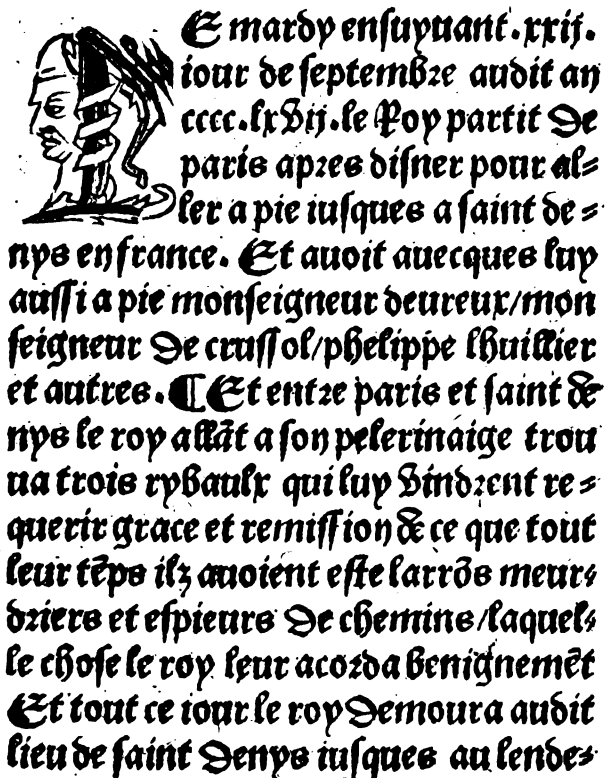 LE mardy ensuyuant.xxij.
iour de septembre audit an
cccc.lxvij.le Roy partit De
paris apres disner pour al⸗
ler a pie iusques a saint de⸗
nys en france. Et auoit auecques luy
aussi a pie monseigneur deureux/mon
seigneur De crussol/phelippe lhuillier
et autres.¶ Et entre paris et saint de
nys le roy allāt a son pelerinaige trou
ua trois rybaulx qui luy vindrent re⸗
querir grace et remission de ce que tout
leur tēps ilz auoient este larrōs meur⸗
driers et espieurs De chemins/laquel⸗
le chose le roy leur acorda benignemēt
Et tout ce iour le roy Demoura audit
lieu de saint Denys iusques au lende⸗